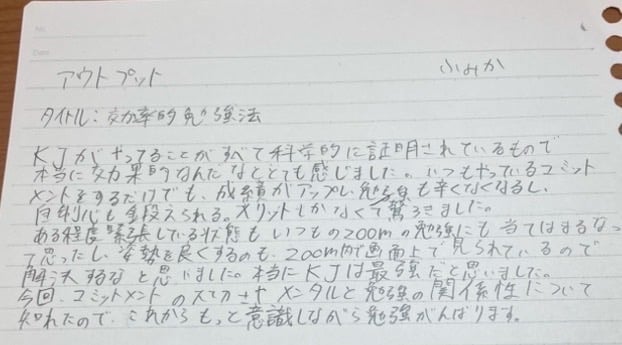 No.
Date
アウトプット
ふみか
タイトル:効率的勉強法
KJがやってることがすべて科学的に証明されているもので
本当に効果的なんだなととても感じました。いつもやっているコミット
メントをするだけでも、成績がアップし、勉強も辛くなくなるし、
自制心も鍛えられる。メリットしかなくて驚きました。
ある程度緊張している状態も、いつもの200mの勉強にも当てはまるなっ
て思ったし、姿勢を良くするのも、200m内で画面上で見られているので
解決するなと思いました。本当にKJは最強だと思いました。
今回、コミットメントの大切さやメンタルと勉強の関係性について
知れたので、これからもっと意識しながら勉強がんばります。